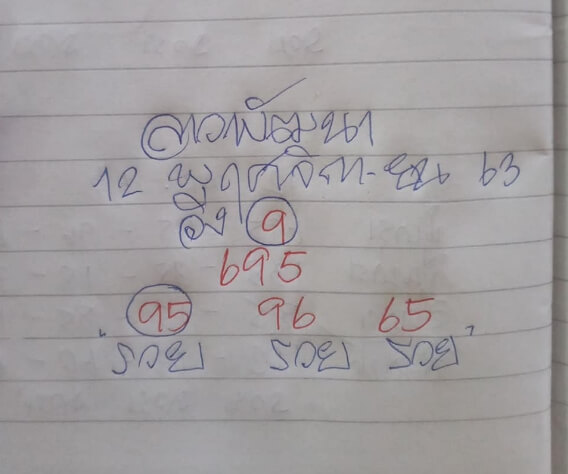 ลาวพัฒนา
12 พฤศจิกา-ยน 63
อิง 9
695
95 96 65
"รวย รวย รวย"